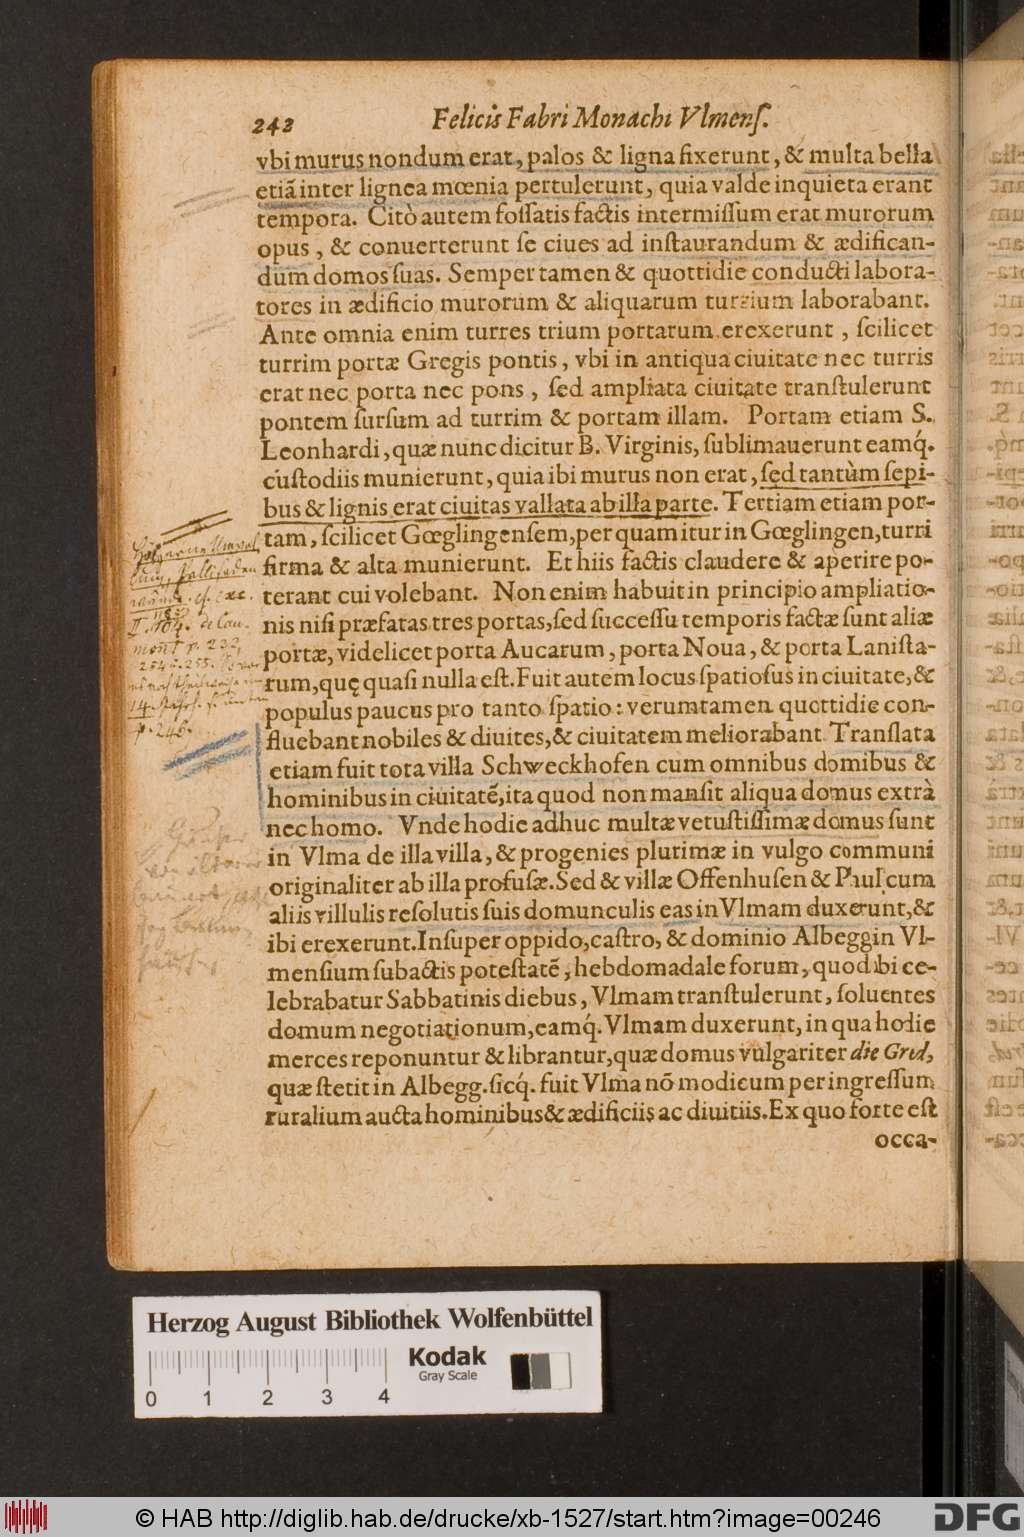 242 Felicis Fabri Monachi Vlmenſ.
vbi murus nondum erat, palos & ligna fixerunt, & multa bella
etiã inter lignea mœnia pertulerunt, quia valde inquieta erant
tempora. Citò autem foſſatis factis intermiſſum erat murorum
opus, & conuerterunt ſe ciues ad inſtaurandum & ædifican-
dum domos ſuas. Semper tamen & quottidie conducti labora-
tores in ædificio murorum & aliquarum turrium laborabant.
Ante omnia enim turres trium portarum erexerunt, ſcilicet
turrim portæ Gregis pontis, vbi in antiqua ciuitate nec turris
erat nec porta nec pons, ſed ampliata ciuitate tranſtulerunt
pontem ſurſum ad turrim & portam illam. Portam etiam S.
Leonhardi, quæ nunc dicitur B. Virginis, ſublimauerunt eamq́.
cuſtodiis munierunt, quia ibi murus non erat, ſed tantùm ſepi-
bus & lignis erat ciuitas vallata ab illa parte. Tertiam etiam por-
tam, ſcilicet Gœglingenſem, per quam itur in Gœglingen, turri
firma & alta munierunt. Et hiis factis claudere & aperire po-
terant cui volebant. Non enim habuit in principio ampliatio-
nis niſi præfatas tres portas, ſed ſucceſſu temporis factæ ſunt aliæ
portæ, videlicet porta Aucarum, porta Noua, & porta Laniſta-
rum, quę quaſi nulla eſt. Fuit autem locus ſpatioſus in ciuitate, &
populus paucus pro tanto ſpatio: verumtamen quottidie con-
fluebant nobiles & diuites, & ciuitatem meliorabant. Tranſlata
etiam fuit tota villa Schweckhofen cum omnibus domibus &
hominibus in ciuitatẽ, ita quod non manſit aliqua domus extrà
nec homo. Vnde hodie adhuc multæ vetuſtiſſimæ domus ſunt
in Vlma de illa villa, & progenies plurimæ in vulgo communi
originaliter ab illa profuſæ. Sed & villæ Offenhuſen & Pfaul cum
aliis villulis reſolutis ſuis domunculis eas in Vlmam duxerunt, &
ibi erexerunt. Inſuper oppido, caſtro, & dominio Albeggin Vl-
menſium ſubactis poteſtatẽ, hebdomadale forum, quod ibi ce-
lebrabatur Sabbatinis diebus, Vlmam tranſtulerunt, ſoluentes
domum negotiationum, eamq́. Vlmam duxerunt, in qua hodie
merces reponuntur & librantur, quæ domus vulgariter die Gred,
quæ ſtetit in Albegg. ſicq́. fuit Vlma nõ modicum per ingreſſum
ruralium aucta hominibus & ædificiis ac diuitiis. Ex quo forte eſt
occa-
Herzog August Bibliothek Wolfenbüttel
Kodak
Gray Scale
0 1 2 3 4
© HAB http://diglib.hab.de/drucke/xb-1527/start.htm?image=00246
DFG